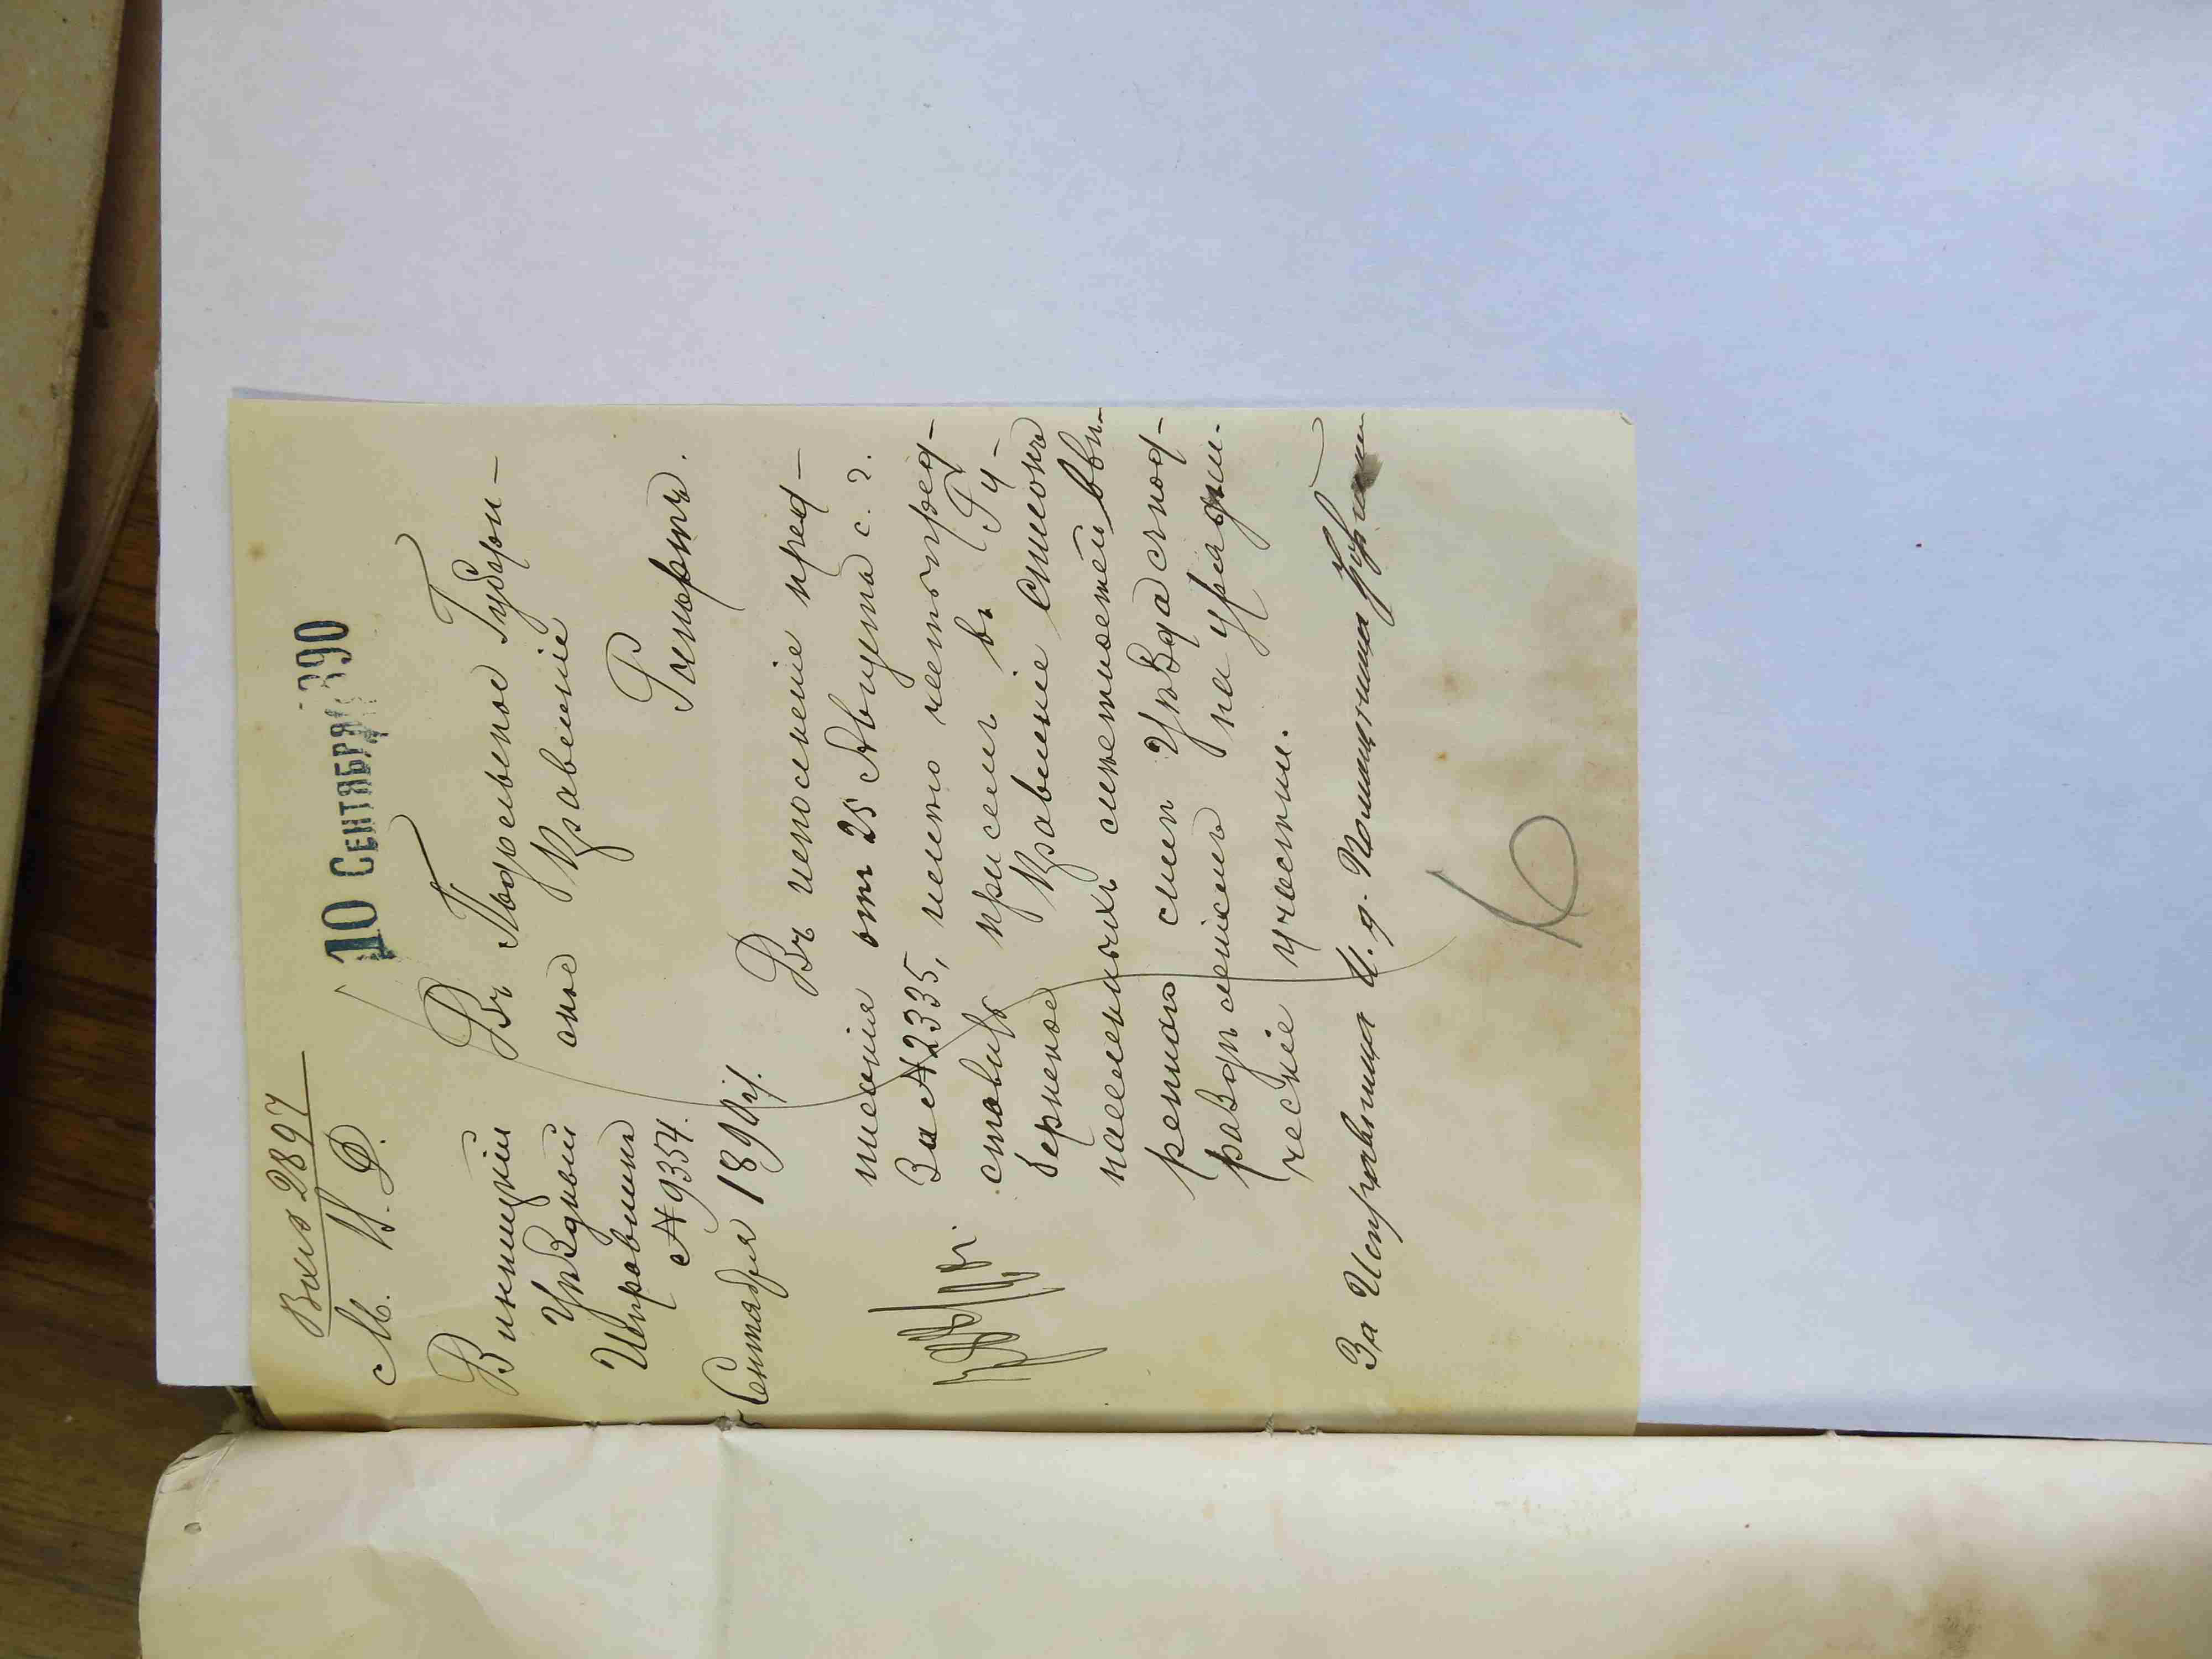 Вход 2897
М. В. Д.
10 СЕНТЯБРЯ 1890
Винницкій
Уѣздный
Исправникъ
№ 9354.
Сентября 1890 г.
Въ Подольское Губерн-
ское Правленіе
Рапортъ.
Въ исполненіе пред-
писанія отъ 25 Августа с. г.
За № 2335, имѣю честь пред-
ставить при семъ въ Гу-
бернское Правленіе списокъ
населенныхъ мѣстностей ввѣ-
реннаго мнѣ уѣзда съ под-
раздѣленіемъ на уряднич-
ческіе участки.
За Исправника И. д. Помощника